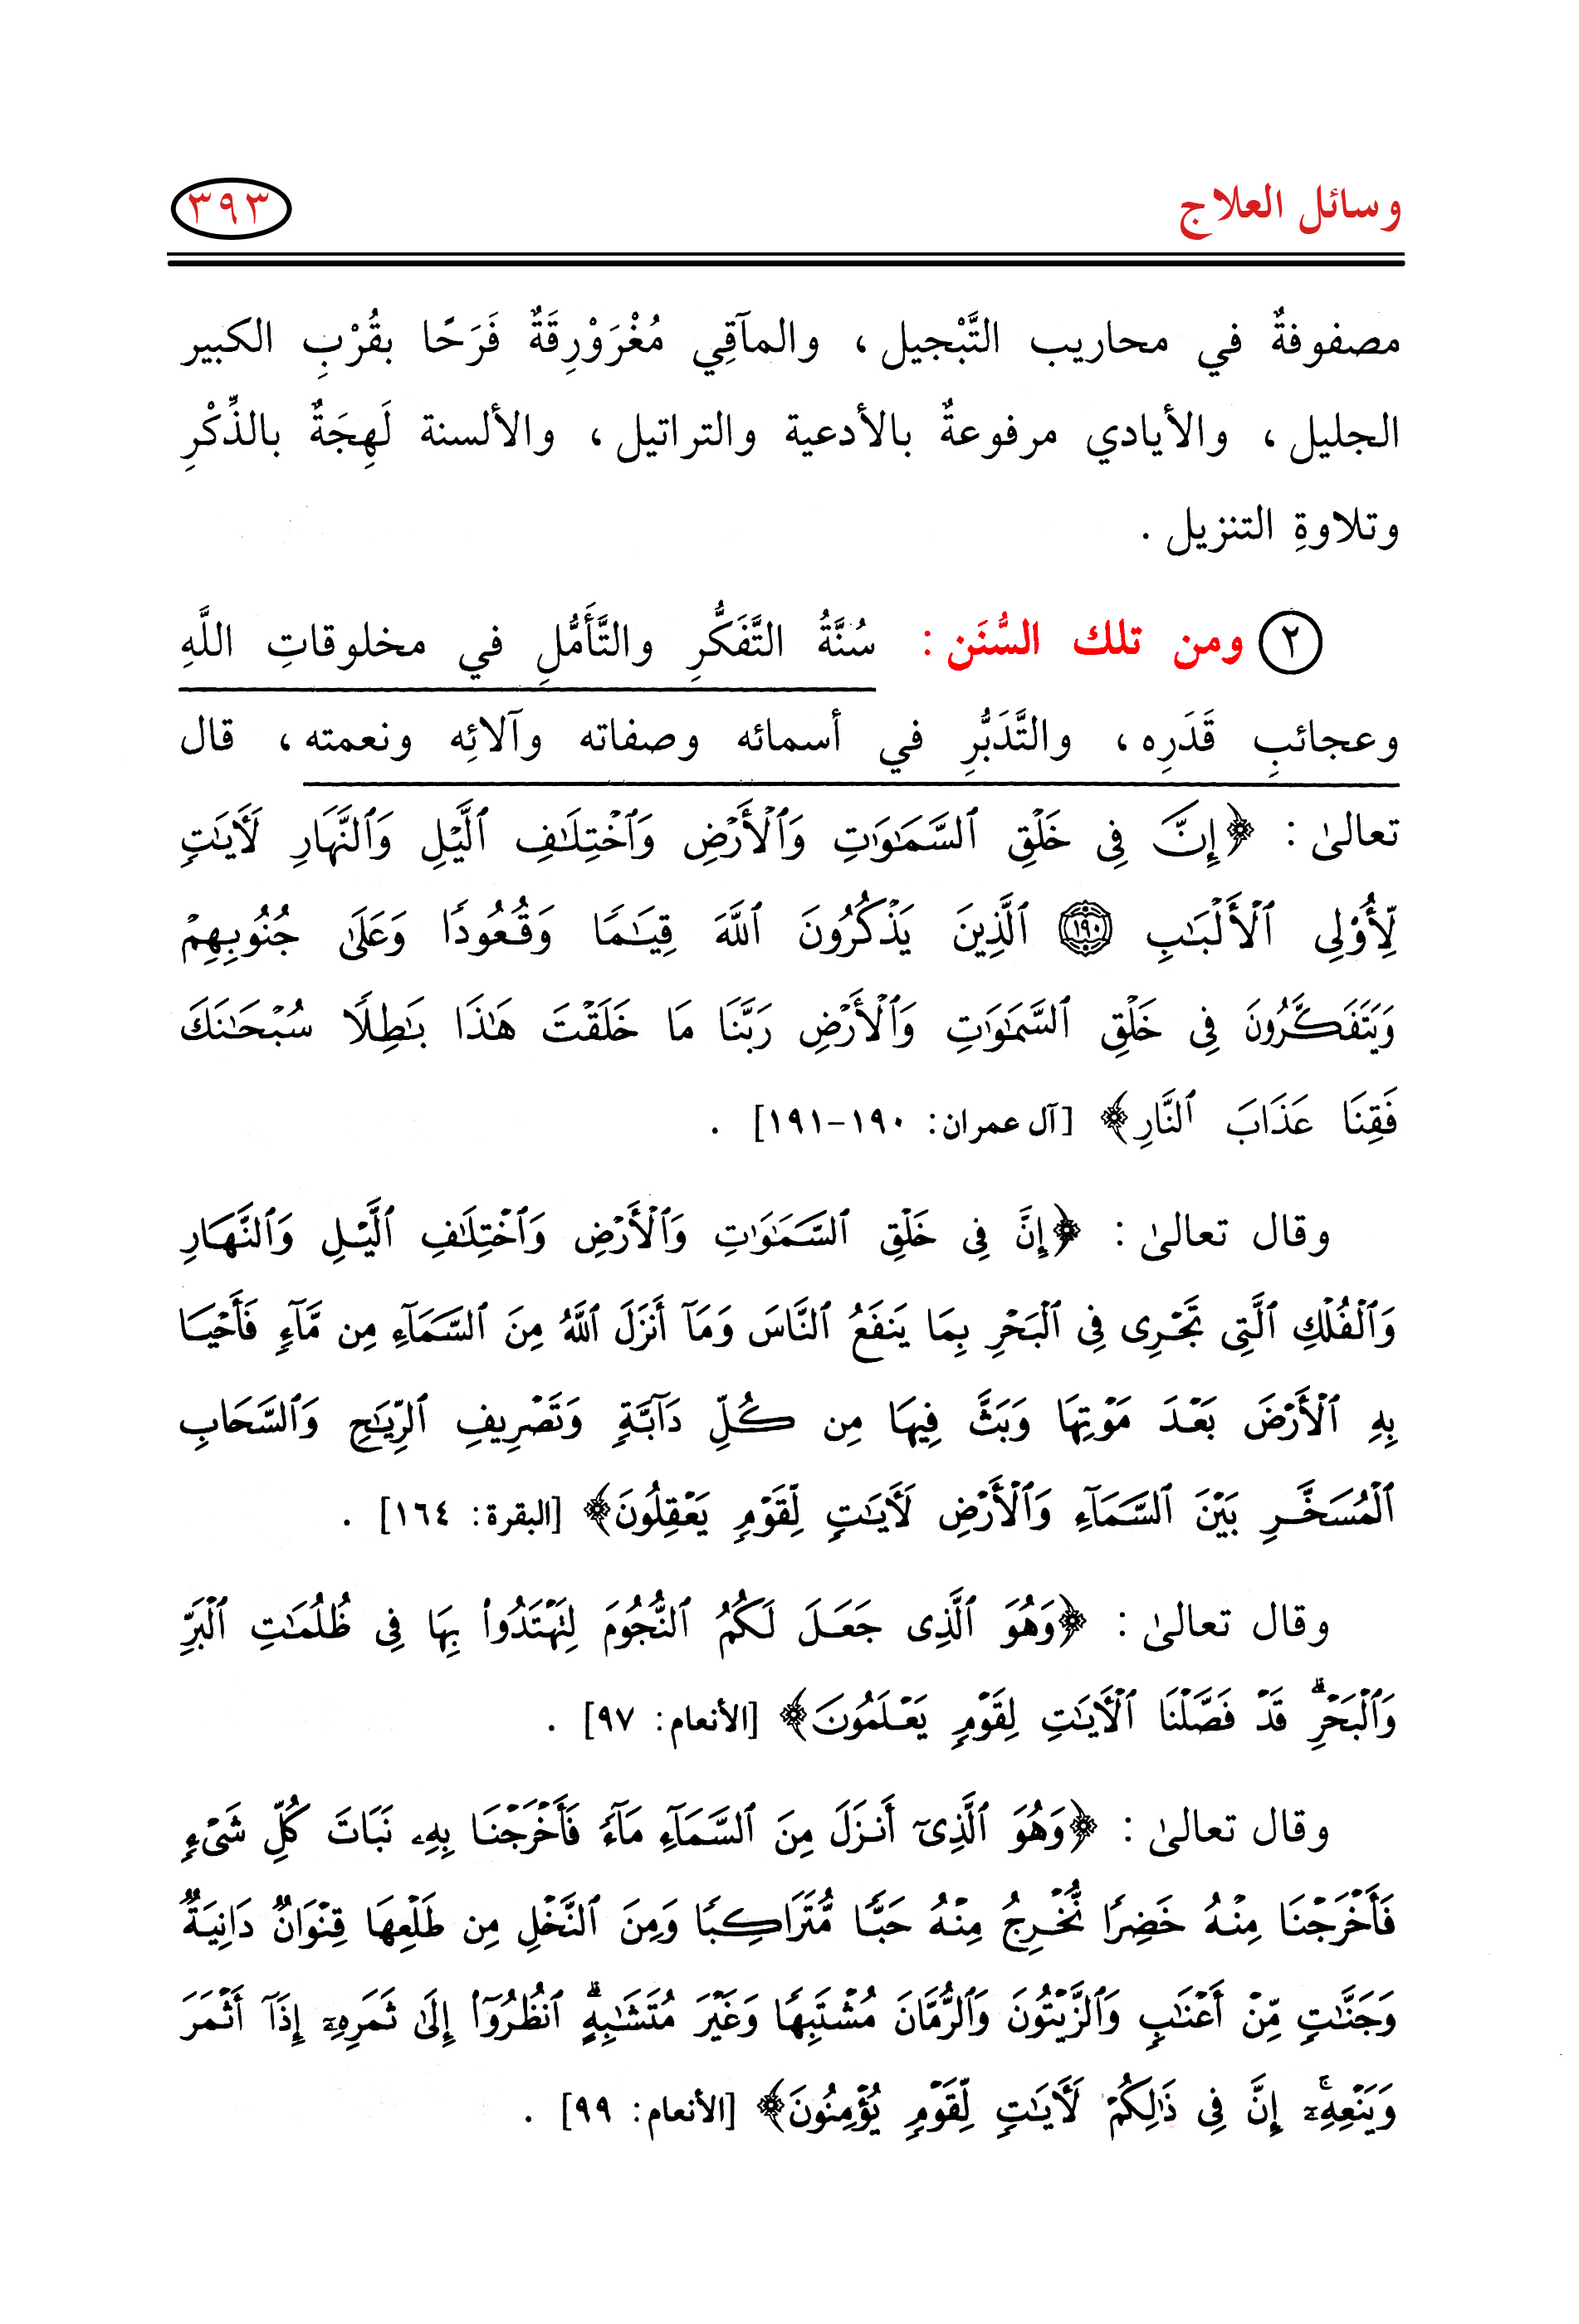 وسائل العلاج ٣٩٣
مصفوفةٌ في محاريب التَّبْجيل، والمآقِي مُغْرَوْرِقَةٌ فَرَحًا بقُرْبِ الكبير
الجليل، والأيادي مرفوعةٌ بالأدعية والتراتيل، والألسنة لَهِجَةٌ بالذِّكْرِ
وتلاوةِ التنزيل .
٢ ومن تلك السُّنَن : سُنَّةُ التَّفَكُّرِ والتَّأَمُّلِ في مخلوقاتِ اللَّهِ
وعجائبِ قَدَرِه، والتَّدَبُّرِ في أسمائه وصفاته وآلائِه ونعمته، قال
تعالىٰ : ﴿إِنَّ فِى خَلْقِ ٱلسَّمَٰوَٰتِ وَٱلْأَرْضِ وَٱخْتِلَٰفِ ٱلَّيْلِ وَٱلنَّهَارِ لَءَايَٰتٍ
لِّأُو۟لِى ٱلْأَلْبَٰبِ ١٩٠ ٱلَّذِينَ يَذْكُرُونَ ٱللَّهَ قِيَٰمًا وَقُعُودًا وَعَلَىٰ جُنُوبِهِمْ
وَيَتَفَكَّرُونَ فِى خَلْقِ ٱلسَّمَٰوَٰتِ وَٱلْأَرْضِ رَبَّنَا مَا خَلَقْتَ هَٰذَا بَٰطِلًا سُبْحَٰنَكَ
فَقِنَا عَذَابَ ٱلنَّارِ﴾ [آل عمران: ١٩٠-١٩١] .
وقال تعالىٰ : ﴿إِنَّ فِى خَلْقِ ٱلسَّمَٰوَٰتِ وَٱلْأَرْضِ وَٱخْتِلَٰفِ ٱلَّيْلِ وَٱلنَّهَارِ
وَٱلْفُلْكِ ٱلَّتِى تَجْرِى فِى ٱلْبَحْرِ بِمَا يَنفَعُ ٱلنَّاسَ وَمَآ أَنزَلَ ٱللَّهُ مِنَ ٱلسَّمَآءِ مِن مَّآءٍ فَأَحْيَا
بِهِ ٱلْأَرْضَ بَعْدَ مَوْتِهَا وَبَثَّ فِيهَا مِن كُلِّ دَآبَّةٍ وَتَصْرِيفِ ٱلرِّيَٰحِ وَٱلسَّحَابِ
ٱلْمُسَخَّرِ بَيْنَ ٱلسَّمَآءِ وَٱلْأَرْضِ لَءَايَٰتٍ لِّقَوْمٍ يَعْقِلُونَ﴾ [البقرة: ١٦٤] .
وقال تعالىٰ : ﴿وَهُوَ ٱلَّذِى جَعَلَ لَكُمُ ٱلنُّجُومَ لِتَهْتَدُوا۟ بِهَا فِى ظُلُمَٰتِ ٱلْبَرِّ
وَٱلْبَحْرِ ۗ قَدْ فَصَّلْنَا ٱلْءَايَٰتِ لِقَوْمٍ يَعْلَمُونَ﴾ [الأنعام: ٩٧] .
وقال تعالىٰ : ﴿وَهُوَ ٱلَّذِىٓ أَنزَلَ مِنَ ٱلسَّمَآءِ مَآءً فَأَخْرَجْنَا بِهِۦ نَبَاتَ كُلِّ شَىْءٍ
فَأَخْرَجْنَا مِنْهُ خَضِرًا نُّخْرِجُ مِنْهُ حَبًّا مُّتَرَاكِبًا وَمِنَ ٱلنَّخْلِ مِن طَلْعِهَا قِنْوَانٌ دَانِيَةٌ
وَجَنَّٰتٍ مِّنْ أَعْنَابٍ وَٱلزَّيْتُونَ وَٱلرُّمَّانَ مُشْتَبِهًا وَغَيْرَ مُتَشَٰبِهٍ ۗ ٱنظُرُوٓا۟ إِلَىٰ ثَمَرِهِۦٓ إِذَآ أَثْمَرَ
وَيَنْعِهِۦٓ ۚ إِنَّ فِى ذَٰلِكُمْ لَءَايَٰتٍ لِّقَوْمٍ يُؤْمِنُونَ﴾ [الأنعام: ٩٩] .